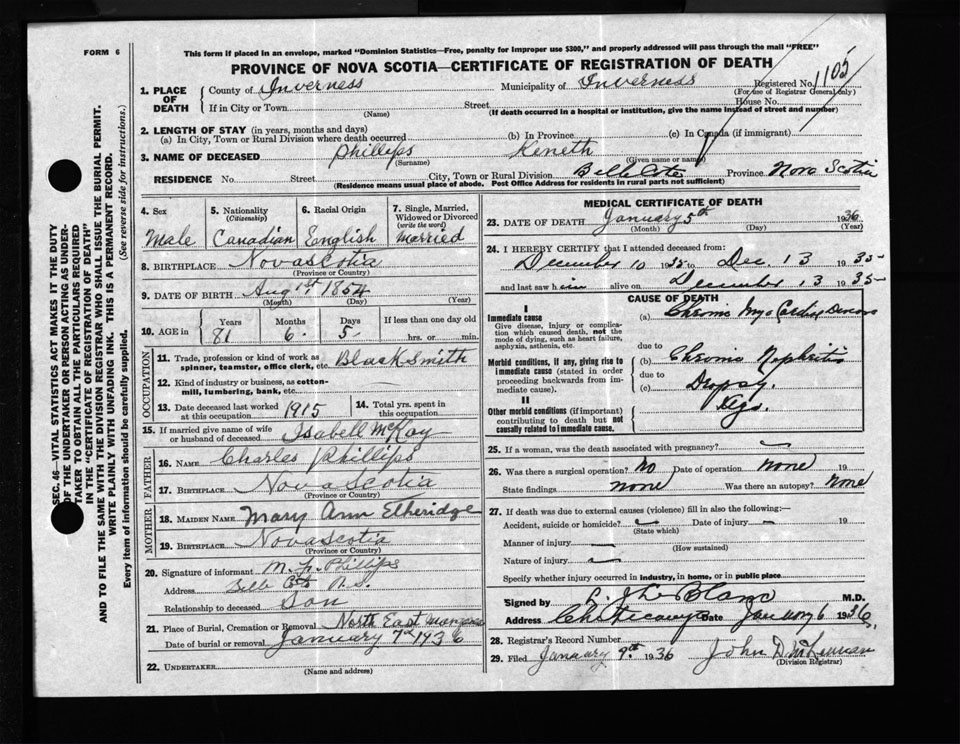 FORM 6
This form if placed in an envelope, marked "Dominion Statistics—Free, penalty for improper use $300," and properly addressed will pass through the mail "FREE"
PROVINCE OF NOVA SCOTIA—CERTIFICATE OF REGISTRATION OF DEATH
1. PLACE OF DEATH County of Inverness Municipality of Inverness Registered No. 1105
(For use of Registrar General only)
If in City or Town (Name) Street House No.
(If death occurred in a hospital or institution, give the name instead of street and number)
2. LENGTH OF STAY (in years, months and days)
(a) In City, Town or Rural Division where death occurred (b) In Province (c) In Canada (if immigrant)
3. NAME OF DECEASED Phillips Keneth
(Surname) (Given name or names)
RESIDENCE No. Street City, Town or Rural Division Belle Cote Province Nova Scotia
(Residence means usual place of abode. Post Office Address for residents in rural parts not sufficient)
4. Sex 5. Nationality (Citizenship) 6. Racial Origin 7. Single, Married, Widowed or Divorced (write the word)
Male Canadian English Married
8. BIRTHPLACE Nova Scotia
(Province or Country)
9. DATE OF BIRTH Aug 1st 1854
(Month) (Day) (Year)
10. AGE in Years Months Days If less than one day old
81 6 5 hrs. or min.
OCCUPATION
11. Trade, profession or kind of work as spinner, teamster, office clerk, etc. Black Smith
12. Kind of industry or business, as cotton-mill, lumbering, bank, etc. —
13. Date deceased last worked at this occupation 1915 14. Total yrs. spent in this occupation
15. If married give name of wife or husband of deceased Isabell McKay
FATHER
16. NAME Charles Phillips
17. BIRTHPLACE Nova Scotia
(Province or Country)
MOTHER
18. MAIDEN NAME Mary Ann Etheridge
19. BIRTHPLACE Nova Scotia
(Province or Country)
20. Signature of informant Phillips
Address Belle N.S.
Relationship to deceased Son
21. Place of Burial, Cremation or Removal North East
Date of burial or removal January 7th 1936
22. UNDERTAKER
(Name and address)
MEDICAL CERTIFICATE OF DEATH
23. DATE OF DEATH January 5th 1936
(Month) (Day) (Year)
24. I HEREBY CERTIFY that I attended deceased from:
December 10 1935 to Dec 13 1935
and last saw him alive on December 13 1935
CAUSE OF DEATH
I
Immediate cause
Give disease, injury or complication which caused death, not the mode of dying, such as heart failure, asphyxia, asthenia, etc.
(a) Chronic
due to
Morbid conditions, if any, giving rise to immediate cause (stated in order proceeding backwards from immediate cause).
(b) Chronic Nephritis
due to
(c) Dropsy.
II
Other morbid conditions (if important) contributing to death but not causally related to immediate cause.
Age.
25. If a woman, was the death associated with pregnancy?
26. Was there a surgical operation? No Date of operation None 19
State findings none Was there an autopsy? None
27. If death was due to external causes (violence) fill in also the following:—
Accident, suicide or homicide? Date of injury 19
(State which)
Manner of injury
(How sustained)
Nature of injury
Specify whether injury occurred in industry, in home, or in public place
Signed by LeBlanc M.D.
Address Cheticamp Date January 6 1936
28. Registrar's Record Number
29. Filed January 9th 1936 John D McLennan
(Division Registrar)
SEC. 46—VITAL STATISTICS ACT MAKES IT THE DUTY
OF THE UNDERTAKER OR PERSON ACTING AS UNDER-
TAKER TO OBTAIN ALL THE PARTICULARS REQUIRED
IN THE "CERTIFICATE OF REGISTRATION OF DEATH"
AND TO FILE THE SAME WITH THE DIVISION REGISTRAR WHO SHALL ISSUE THE BURIAL PERMIT.
WRITE PLAINLY WITH UNFADING INK. THIS IS A PERMANENT RECORD.
Every item of information should be carefully supplied. (See reverse side for instructions.)